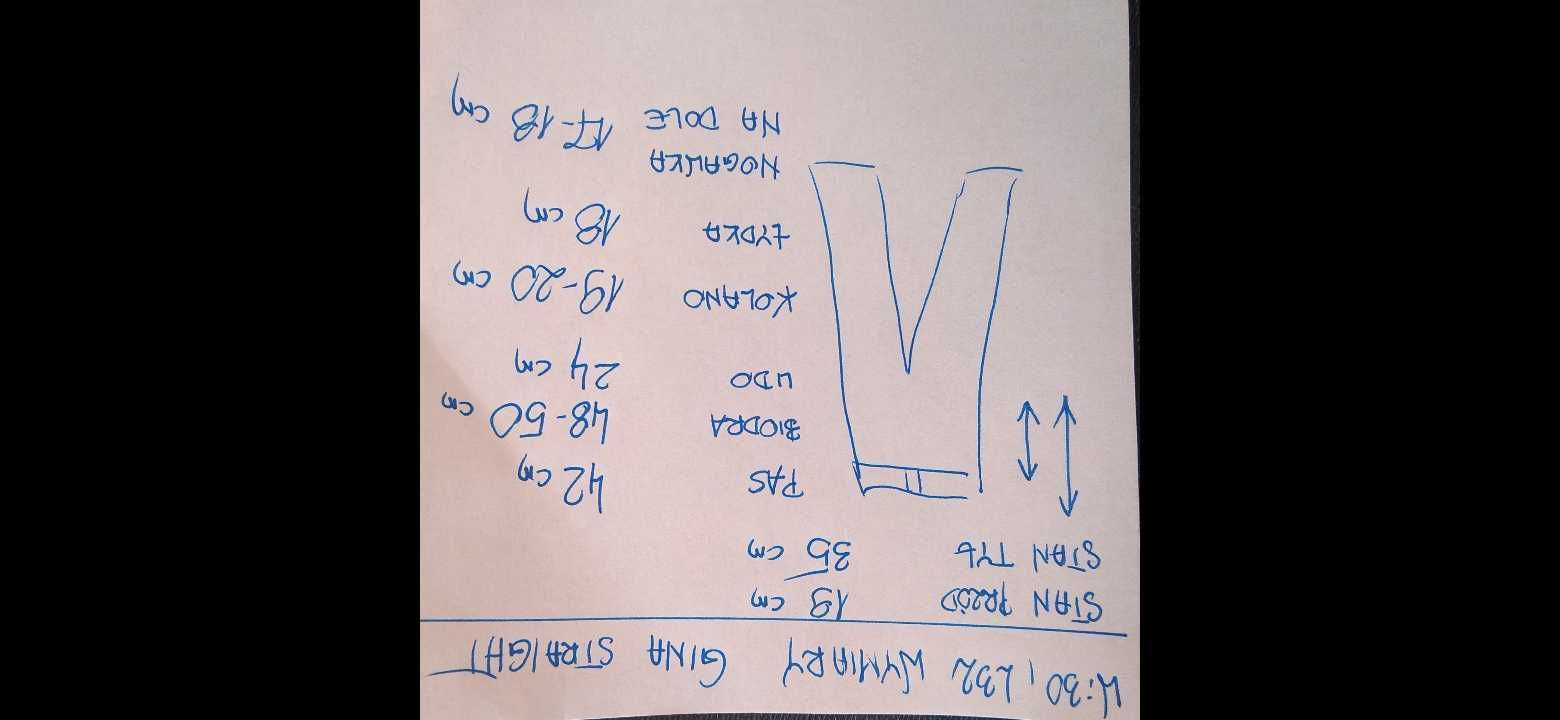 W:30, L32 WYMIARY GINA STRAIGHT
STAN PRZÓD 19 cm
STAN TYŁ 35 cm
PAS 42 cm
BIODRA 48-50 cm
UDO 24 cm
KOLANO 19-20 cm
ŁYDKA 18 cm
NOGAWKA
NA DOLE 17-18 cm